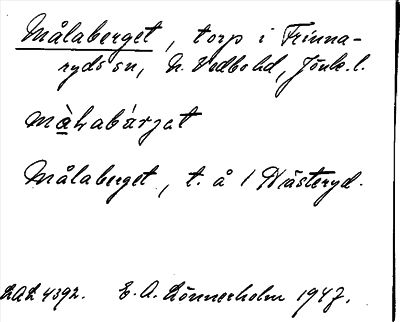 Målaberget, torp i Frinna-
ryds sn, N. Vedbo hd, Jönk. l.
màhabárjat
Målaberget, t. å 1 Nästeryd.
LAL 4392. E. A. Lönnerholm 1947.